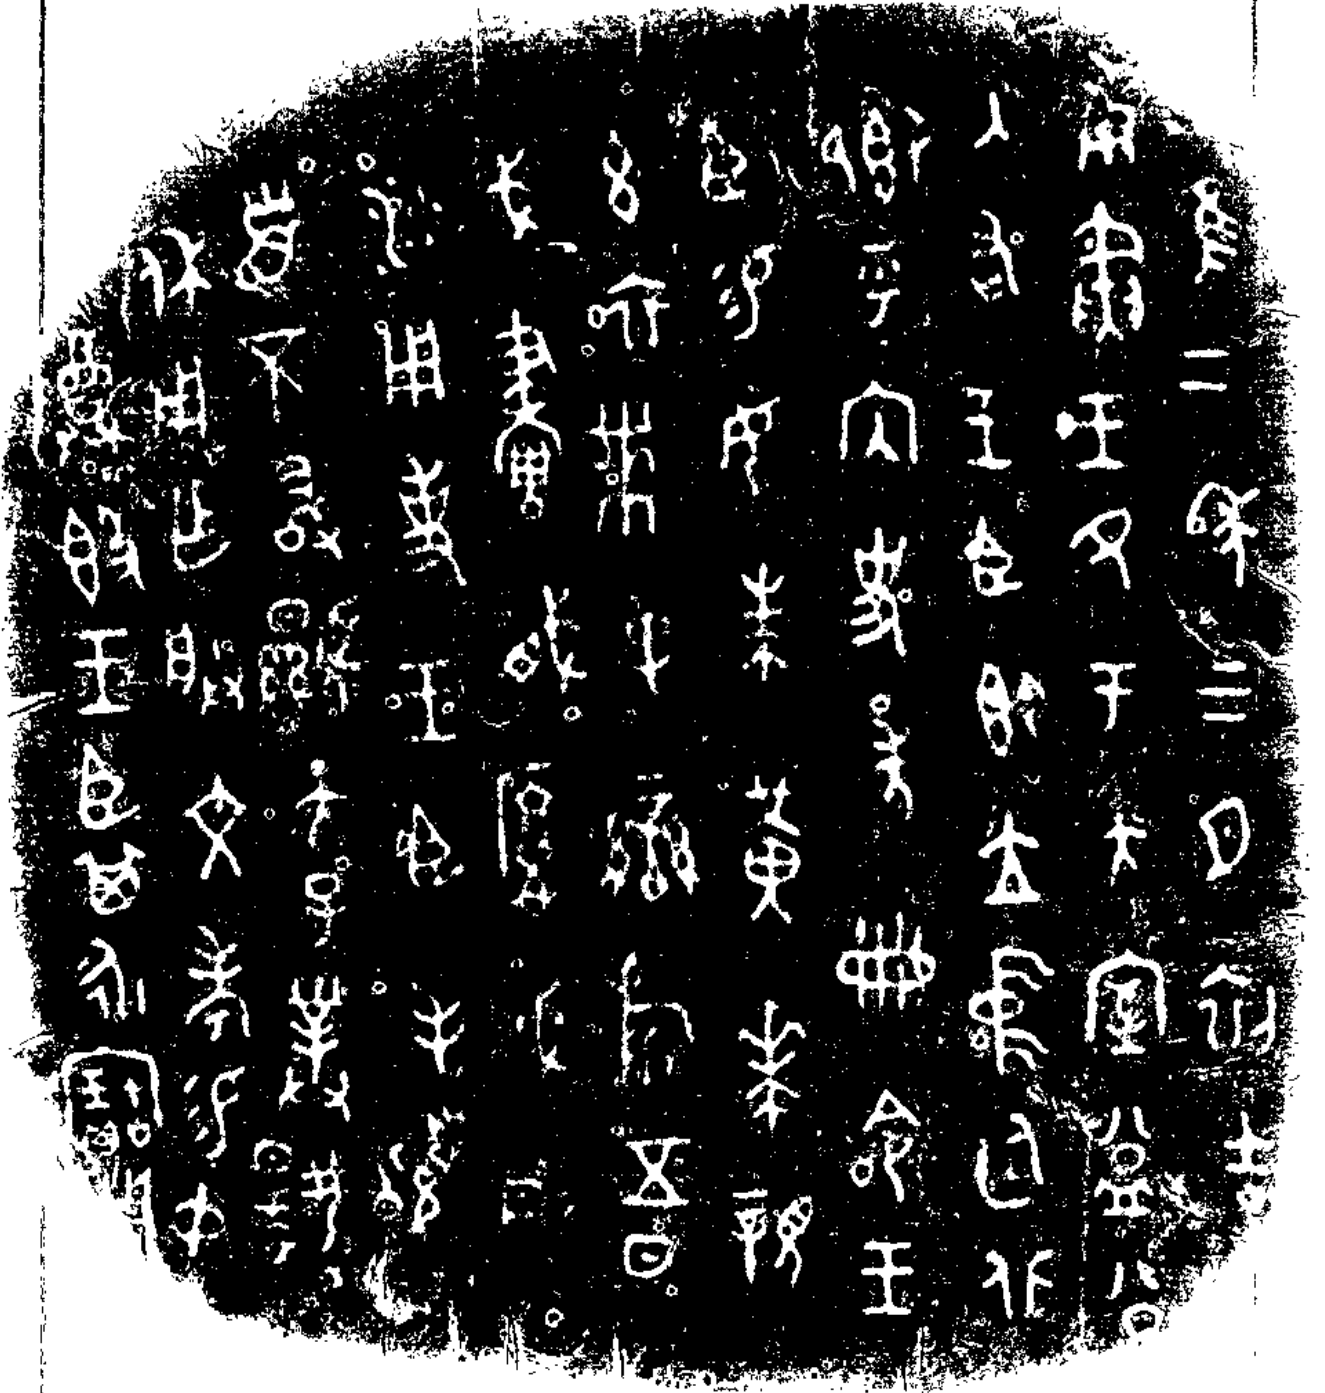 隹二年三月初吉
庚寅王各于大室益公
入右王臣即立中廷北
鄉乎內史敖冊命王
臣易女朱黃𠦪親
玄衣黹屯䜌旂五日
戈畫胾厚必彤
沙用事王臣拜稽
首不顯天子對揚
休用乍朕文考易中
尊簋王臣其永寶用